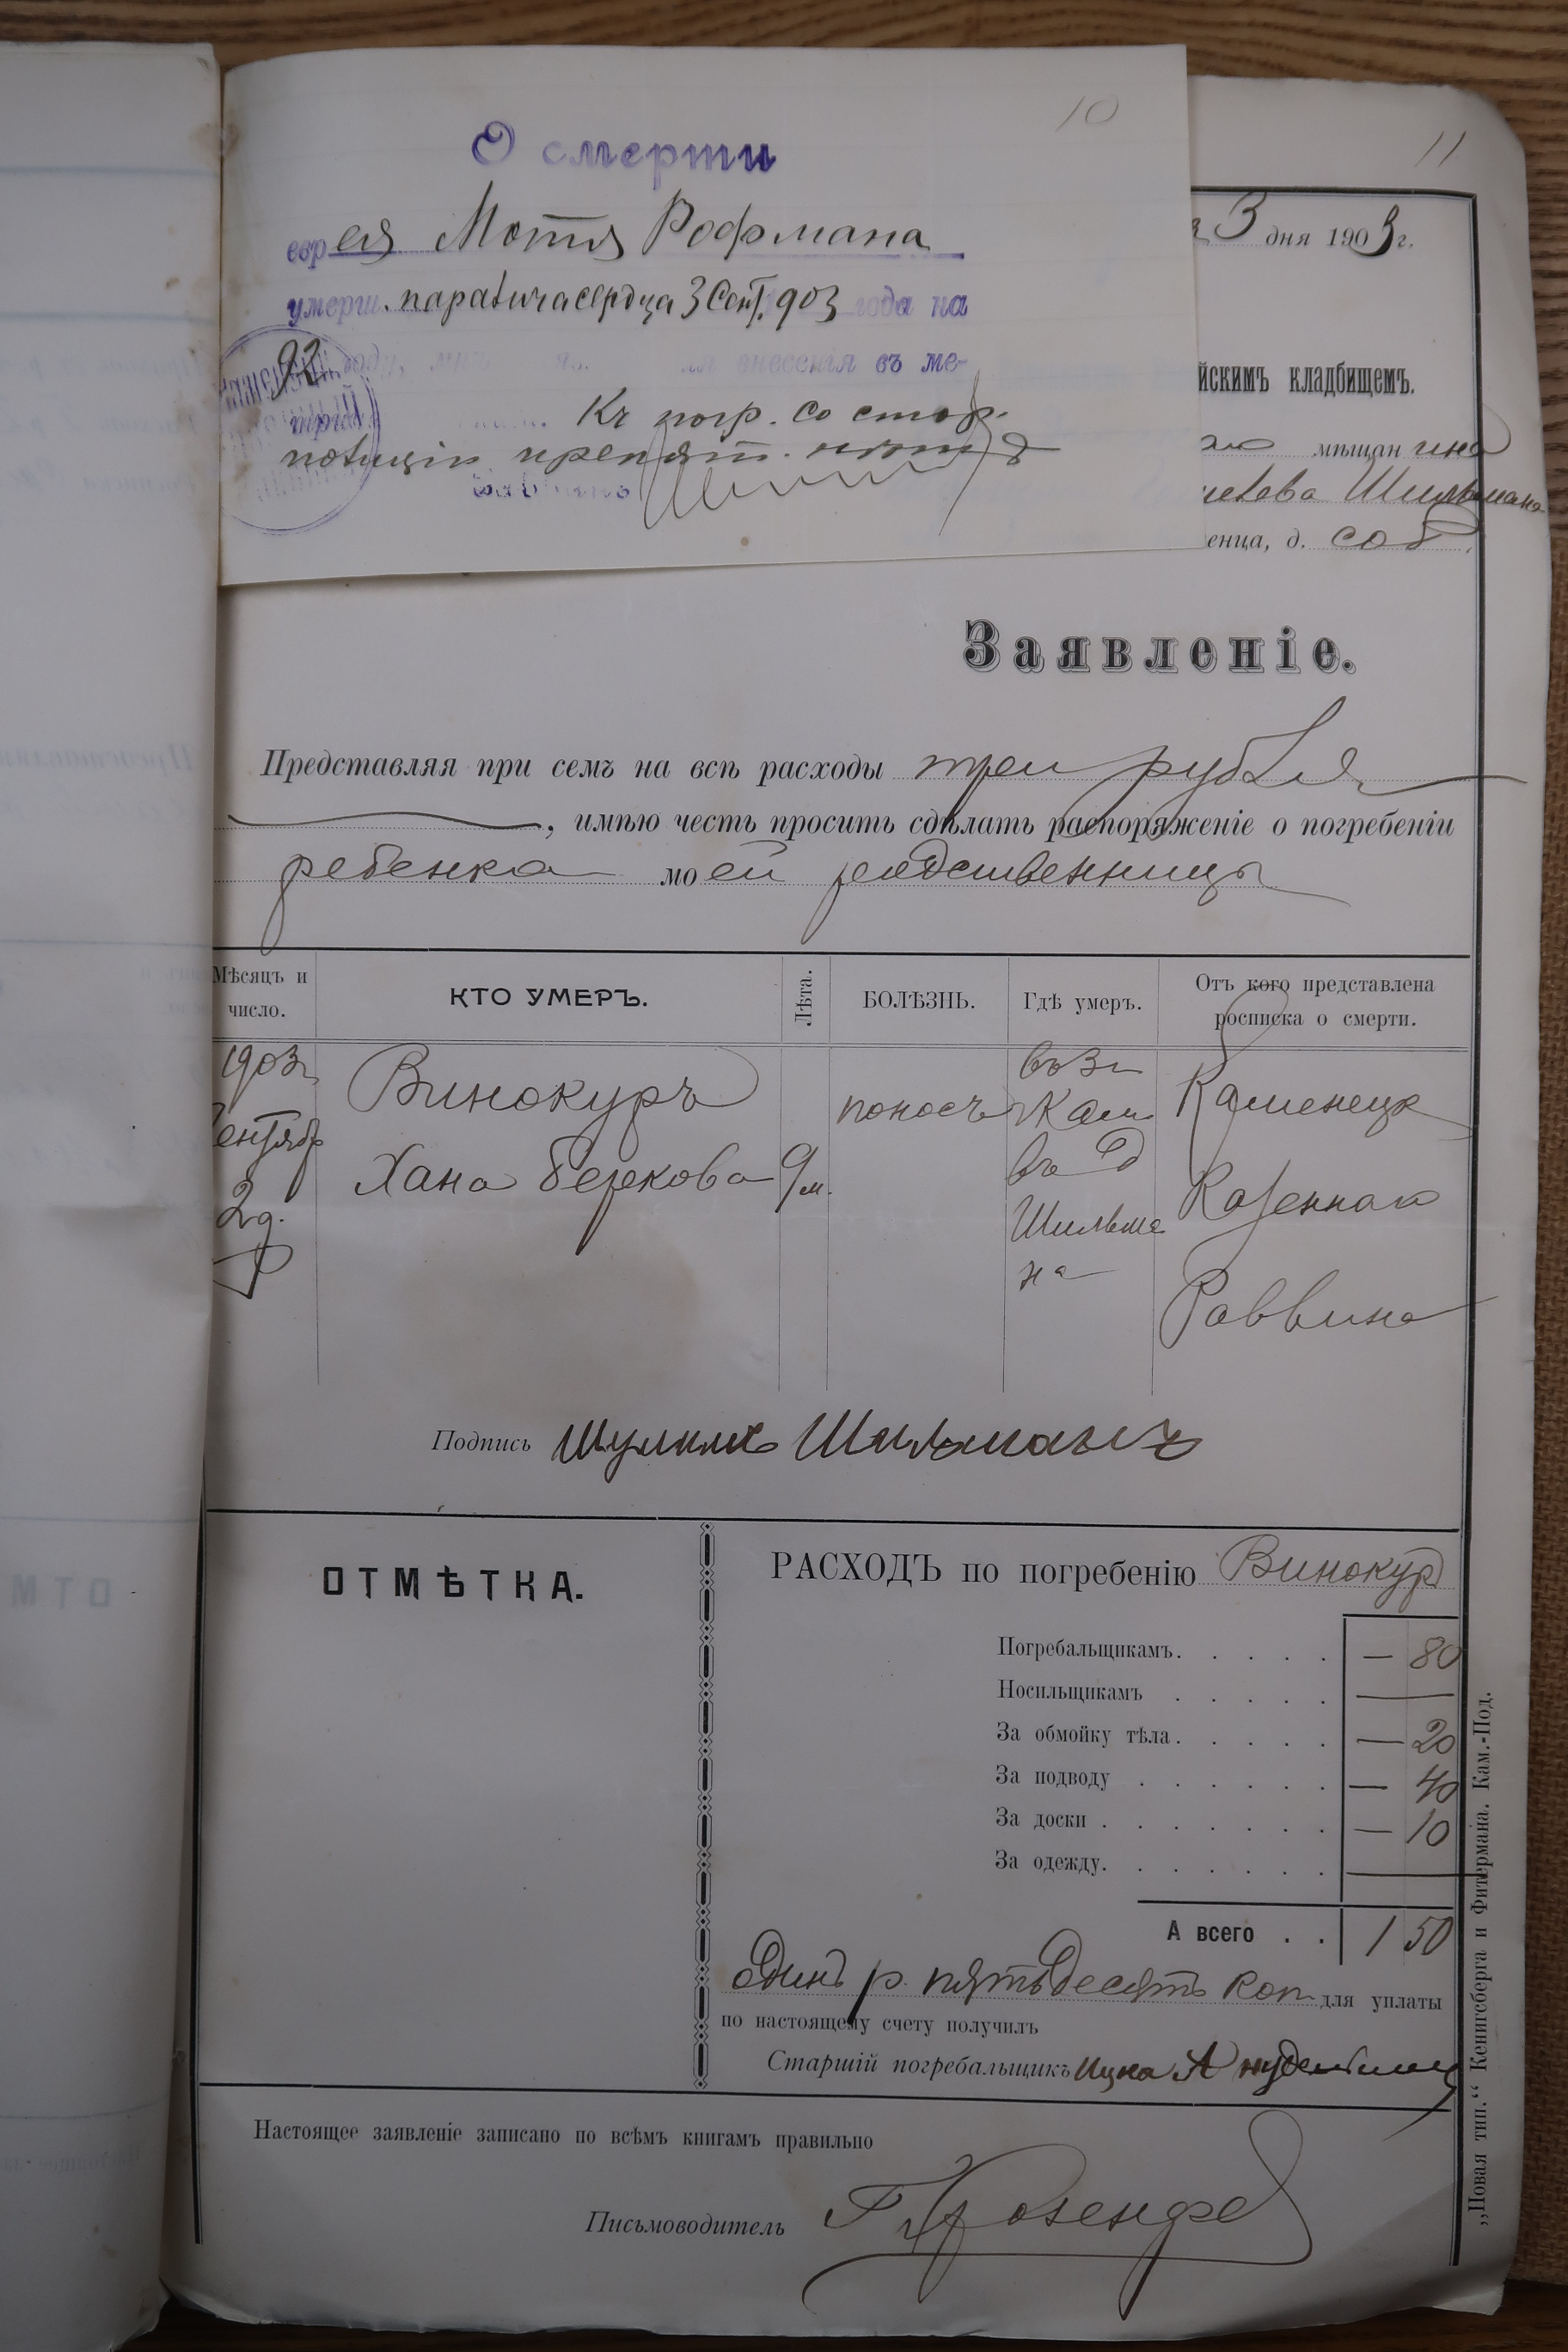 10
О смерти
еврея Мотя Рофмана
умерш. паралича сердца 3 Сент. 903 года на
92 году, внесенія въ ме-
Къ погр. со стор.
полиціи препят. нѣтъ
11
3 дня 1903 г.
йскимъ кладбищемъ.
мѣщанина
Шильмана
енца, д. соб.
Заявленіе.
Представляя при семъ на всѣ расходы три рубля
, имѣю честь просить сдѣлать распоряженіе о погребеніи
ребенка моей родственницы
Мѣсяцъ и число. КТО УМЕРЪ. Лѣта. БОЛѢЗНЬ. Гдѣ умеръ. Отъ кого представлена росписка о смерти.
1903 г. Сентябр 2 д.
Винокуръ
Хана Беркова
9 м.
поносъ
въ д Шильмана
Каменецк
Казеннаго
Раввина
Подпись Шулимъ Шильманъ
ОТМѢТКА.
РАСХОДЪ по погребенію Винокур
Погребальщикамъ. — 80
Носильщикамъ —
За обмойку тѣла. — 20
За подводу — 40
За доски — 10
За одежду. —
А всего 1 50
Одинъ р. пятьдесятъ коп. для уплаты
по настоящему счету получилъ
Старшій погребальщикъ Ицко
Настоящее заявленіе записано по всѣмъ книгамъ правильно
Письмоводитель Розенфе
„Новая тип.“ Кенигсберга и Фитермана. Кам.-Под.